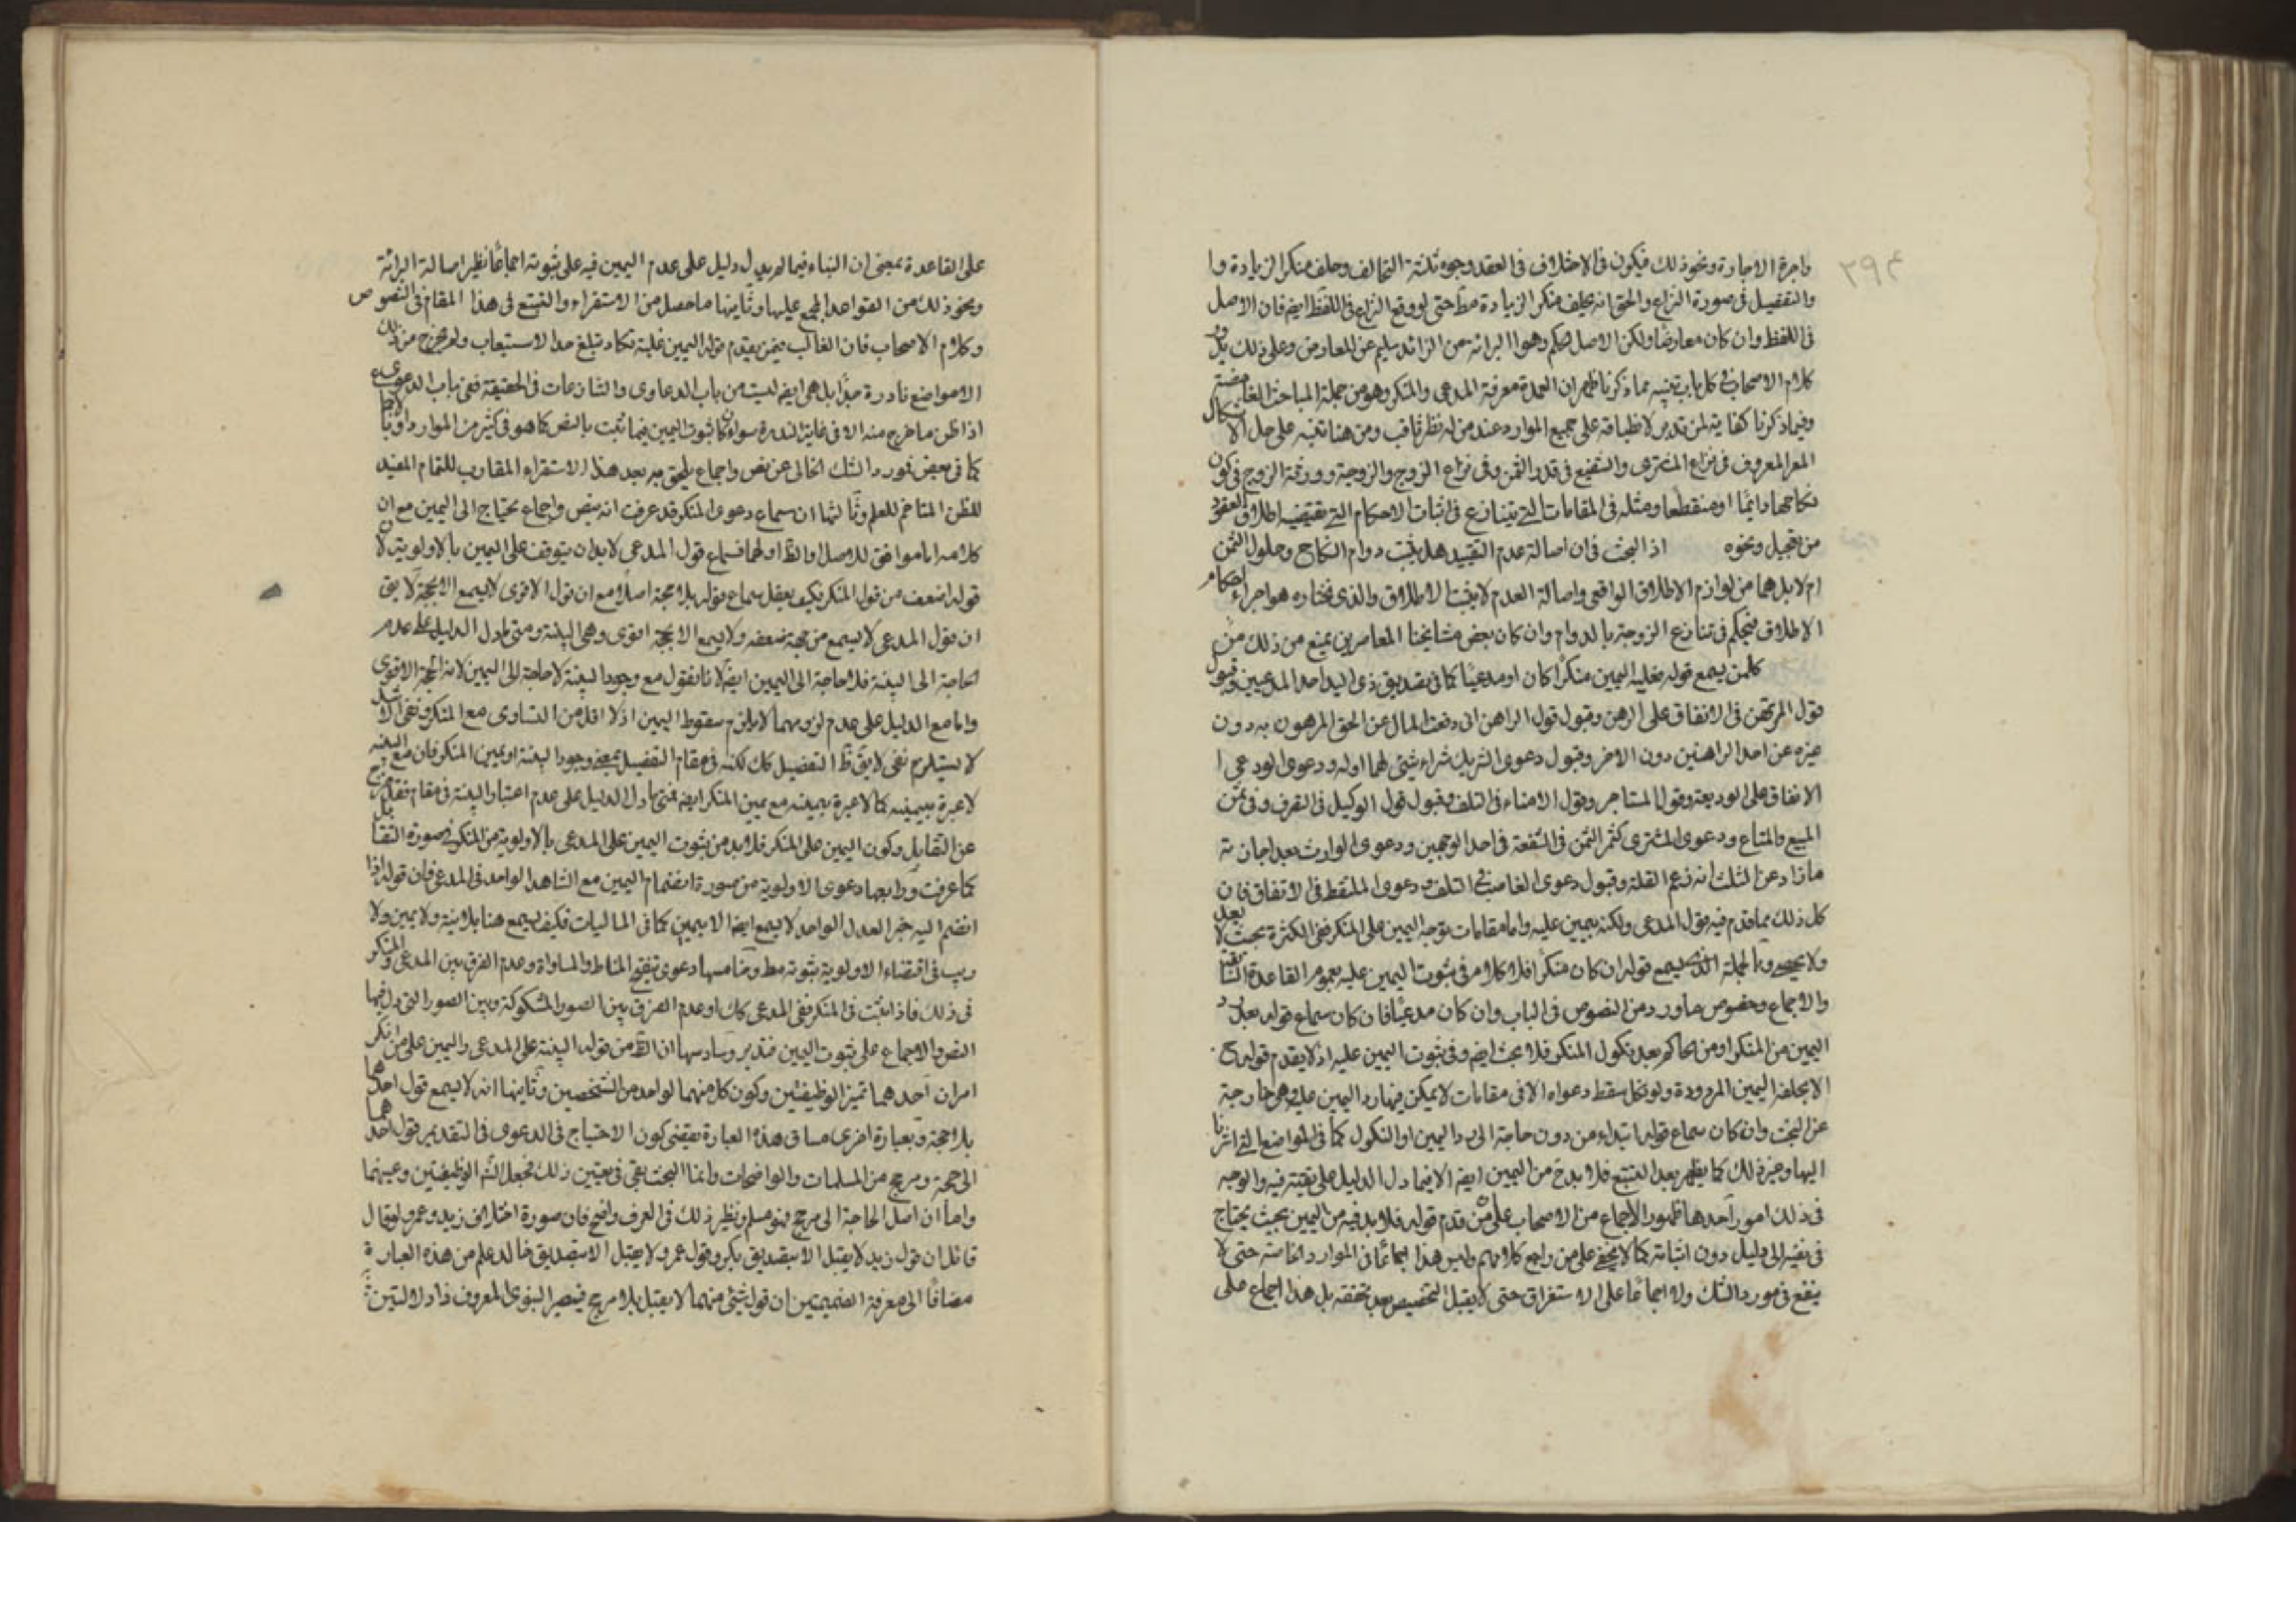 ٢٩٤
واجرة الاجارة ونحو ذلك فيكون فى الاختلاف فى العقد وجوه ثلثة التحالف وحلف منكر الزيادة وا
والتفصيل فى صورة النزاع والحق انه يحلف منكر الزيادة مط حتى لو وقع النزاع فى اللفظ ايضا فان الاصل
فى اللفظ وان كان معارضا ولكن الاصل فى الحكم وهو البرائة من الزائد سليم عن المعارض وعلى ذلك يدور
كلام الاصحاب فى كل باب تنبيه مما ذكرنا ظهر ان العمدة معرفة المدعى والمنكر وهو من جملة المباحث الغامضة
وفيما ذكرنا كفاية لمن تدبر لانطباقه على جميع الموارد عند من له نظر ثاقب ومن هنا تنبه على حل الاشكال
المعروف فى نزاع المشترى والشفيع فى قدر الثمن وفى نزاع الزوج والزوجة وورثة الزوج فى كون
نكاحها دائما او منقطعا ومثله فى المقامات التى يتنازع فى اثبات الاحكام التى يقتضيه اطلاق العقود
من تعجيل ونحوه اذ البحث فى ان اصالة عدم التقييد هل يثبت دوام النكاح وحلول الثمن
ام لا بل هما من لوازم الاطلاق الواقعى واصالة العدم لا يثبت الاطلاق والذى نختاره هو اجراء احكام
الاطلاق فيحكم فى تنازع الزوجة بالدوام وان كان بعض مشايخنا المعاصرين يمنع من ذلك من
كلمن يسمع قوله فعليه اليمين منكرا كان او مدعيا كما فى تصديق ذى اليد احد المدعيين وقبول
قول المرتهن فى الانفاق على الرهن وقبول قول الراهن انى دفعت المال عن الحق المرهون به دون
غيره عن احد الراهنين دون الاخر وقبول دعوى الشريك شراء شئ لهما او له ودعوى الودعى ا
الانفاق على الوديعة وقول المستاجر وقول الامناء فى التلف وقبول قول الوكيل فى التصرف وفى ثمن
المبيع والمتاع ودعوى المشترى كثر الثمن فى الشفعة فى احد الوجهين ودعوى الوارث بعد اجازته
ما زاد عن الثلث انه زعم القلة وقبول دعوى الغاصب فى التلف ودعوى الملتقط فى الانفاق فان
كل ذلك مما قدم فيه قول المدعى ولكنه بيمين عليه واما مقامات توجه اليمين على المنكر ففى الكثرة بحيث لا يعد
ولا يحصى وبالجملة الذى يسمع قوله ان كان منكرا فلا كلام فى ثبوت اليمين عليه بعموم القاعدة السابقة
والاجماع وخصوص ما ورد من النصوص فى الباب وان كان مدعيا فان كان سماع قوله بعد رد
اليمين من المنكر او من الحاكم بعد نكول المنكر فلا بحث ايضا وفى ثبوت اليمين عليه اذ لا يقدم قوله ح
الا بحلفه اليمين المردودة ولو نكل سقط دعواه الا فى مقامات لا يمكن فيها رد اليمين عليه وهى خارجة
عن البحث وان كان سماع قوله ابتداء من دون حاجة الى رد اليمين او النكول كما فى المواضع التى اشرنا
اليها وغير ذلك كما يظهر بعد التتبع فلا بد ح من اليمين ايضا الا فيما دل الدليل على نفيه فيه والوجه
فى ذلك امور احدها ظهور الاجماع من الاصحاب على من قدم قوله فلا بد فيه من اليمين بحيث يحتاج
فى نفيه الى دليل دون اثباته كما لا يخفى على من راجع كلامهم وليس هذا اجماعا فى الموارد الخاصة حتى لا
ينفع فى مورد الشك ولا اجماعا على الاستغراق حتى لا يقبل التخصيص بعد تحققه بل هذا اجماع على
على القاعدة بمعنى ان البناء فيما لم يدل دليل على عدم اليمين فيه على ثبوته اجماعا نظير اصالة البرائة
ونحو ذلك من القواعد المجمع عليها وثانيها ما حصل من الاستقراء والتتبع فى هذا المقام فى النصوص
وكلام الاصحاب فان الغالب فيمن يقدم قوله اليمين غلبة تكاد تبلغ حد الاستيعاب ولم يخرج من ذلك
الا مواضع نادرة جدا بل هى ايضا ليست من باب الدعاوى والتنازعات فى الحقيقة ففى باب الدعوى
اذا ظن ما خرج منه الا فى غاية الندرة سواء كان ثبوت اليمين فيما ثبت بالنص كما هو فى كثير من الموارد او بالاجماع
كما فى بعض فمورد الشك الخالى عن نص واجماع يلحق به بعد هذا الاستقراء المقارب للتمام المفيد
للظن المتاخم للعلم وثالثها ان سماع دعوى المنكر قد عرفت انه بنص واجماع يحتاج الى اليمين مع ان
كلامه اما موافق للاصل او الظ او لهما فسماع قول المدعى لا بد ان يتوقف على اليمين بالاولوية لان
قوله اضعف من قول المنكر فكيف يعقل سماع قوله بلا حجة اصلا مع ان قول الاقوى لا يسمع الا بحجة لا يق
ان قول المدعى لا يسمع من جهة ضعفه ولا يسمع الا بحجة اقوى وهى البينة ومتى ما دل الدليل على عدم
الحاجة الى البينة فلا حاجة الى اليمين ايضا لانا نقول مع وجود البينة لا حاجة الى اليمين لانه الحجة الاقوى
واما مع الدليل على عدم لزومها لا يلزم سقوط اليمين اذ لا اقل من التساوى مع المنكر ونفى الاشد
لا يستلزم نفى لا يق ظ التفصيل كك لكنه فى مقام التفصيل بمعنى وجود البينة او يمين المنكر فان مع البينة
لا عبرة بيمينه كما لا عبرة بيمينه مع يمين المنكر ايضا فمتى ما دل الدليل على عدم اعتبار البينة فى مقام فقد خرج
عن التقابل وكون اليمين على المنكر فلا بد من ثبوت اليمين على المدعى بالاولوية من المنكر فى صورة التقابل
كما عرفت ورابعها دعوى الاولوية من صورة انضمام اليمين مع الشاهد الواحد فى المدعى فان قوله اذا
انضم اليه خبر العدل الواحد لا يسمع ايضا الا بيمين كما فى الماليات فكيف يسمع هنا بلا بينة ولا يمين ولا
ريب فى اقتضاء الاولوية ثبوته مط وخامسها دعوى تنقيح المناط والمساواة وعدم الفرق بين المدعى والمنكر
فى ذلك فاذا ثبت فى المنكر ففى المدعى كك او عدم الفرق بين الصور المشكوكة وبين الصور التى دل فيها
النص والاجماع على ثبوت اليمين فتدبر وسادسها ان الظ من قوله البينة على المدعى واليمين على من انكر
امران احدهما تميز الوظيفتين وكون كل منهما لواحد من الشخصين وثانيها انه لا يسمع قول احدهما
بلا حجة وبعبارة اخرى مساق هذه العبارة يقتضى كون الاحتياج فى الدعوى فى التقديم قول احدهما
الى حجة ومرجح من المسلمات والواضحات وانما البحث بقى فى تعيين ذلك فجعل الشرع الوظيفتين وعينهما
واما ان اصل الحاجة الى مرجح فهو مسلم ونظير ذلك فى العرف واضح فان صورة اختلاف زيد وعمرو لو قال
قائل ان قول زيد لا يقبل الا بتصديق بكر وقول عمرو لا يقبل الا بتصديق خالد علم من هذه العبارة
مضافا الى معرفة الضميمتين ان قول شئ منهما لا يقبل بلا مرجح فيصير النبوى المعروف ذا دلالتين